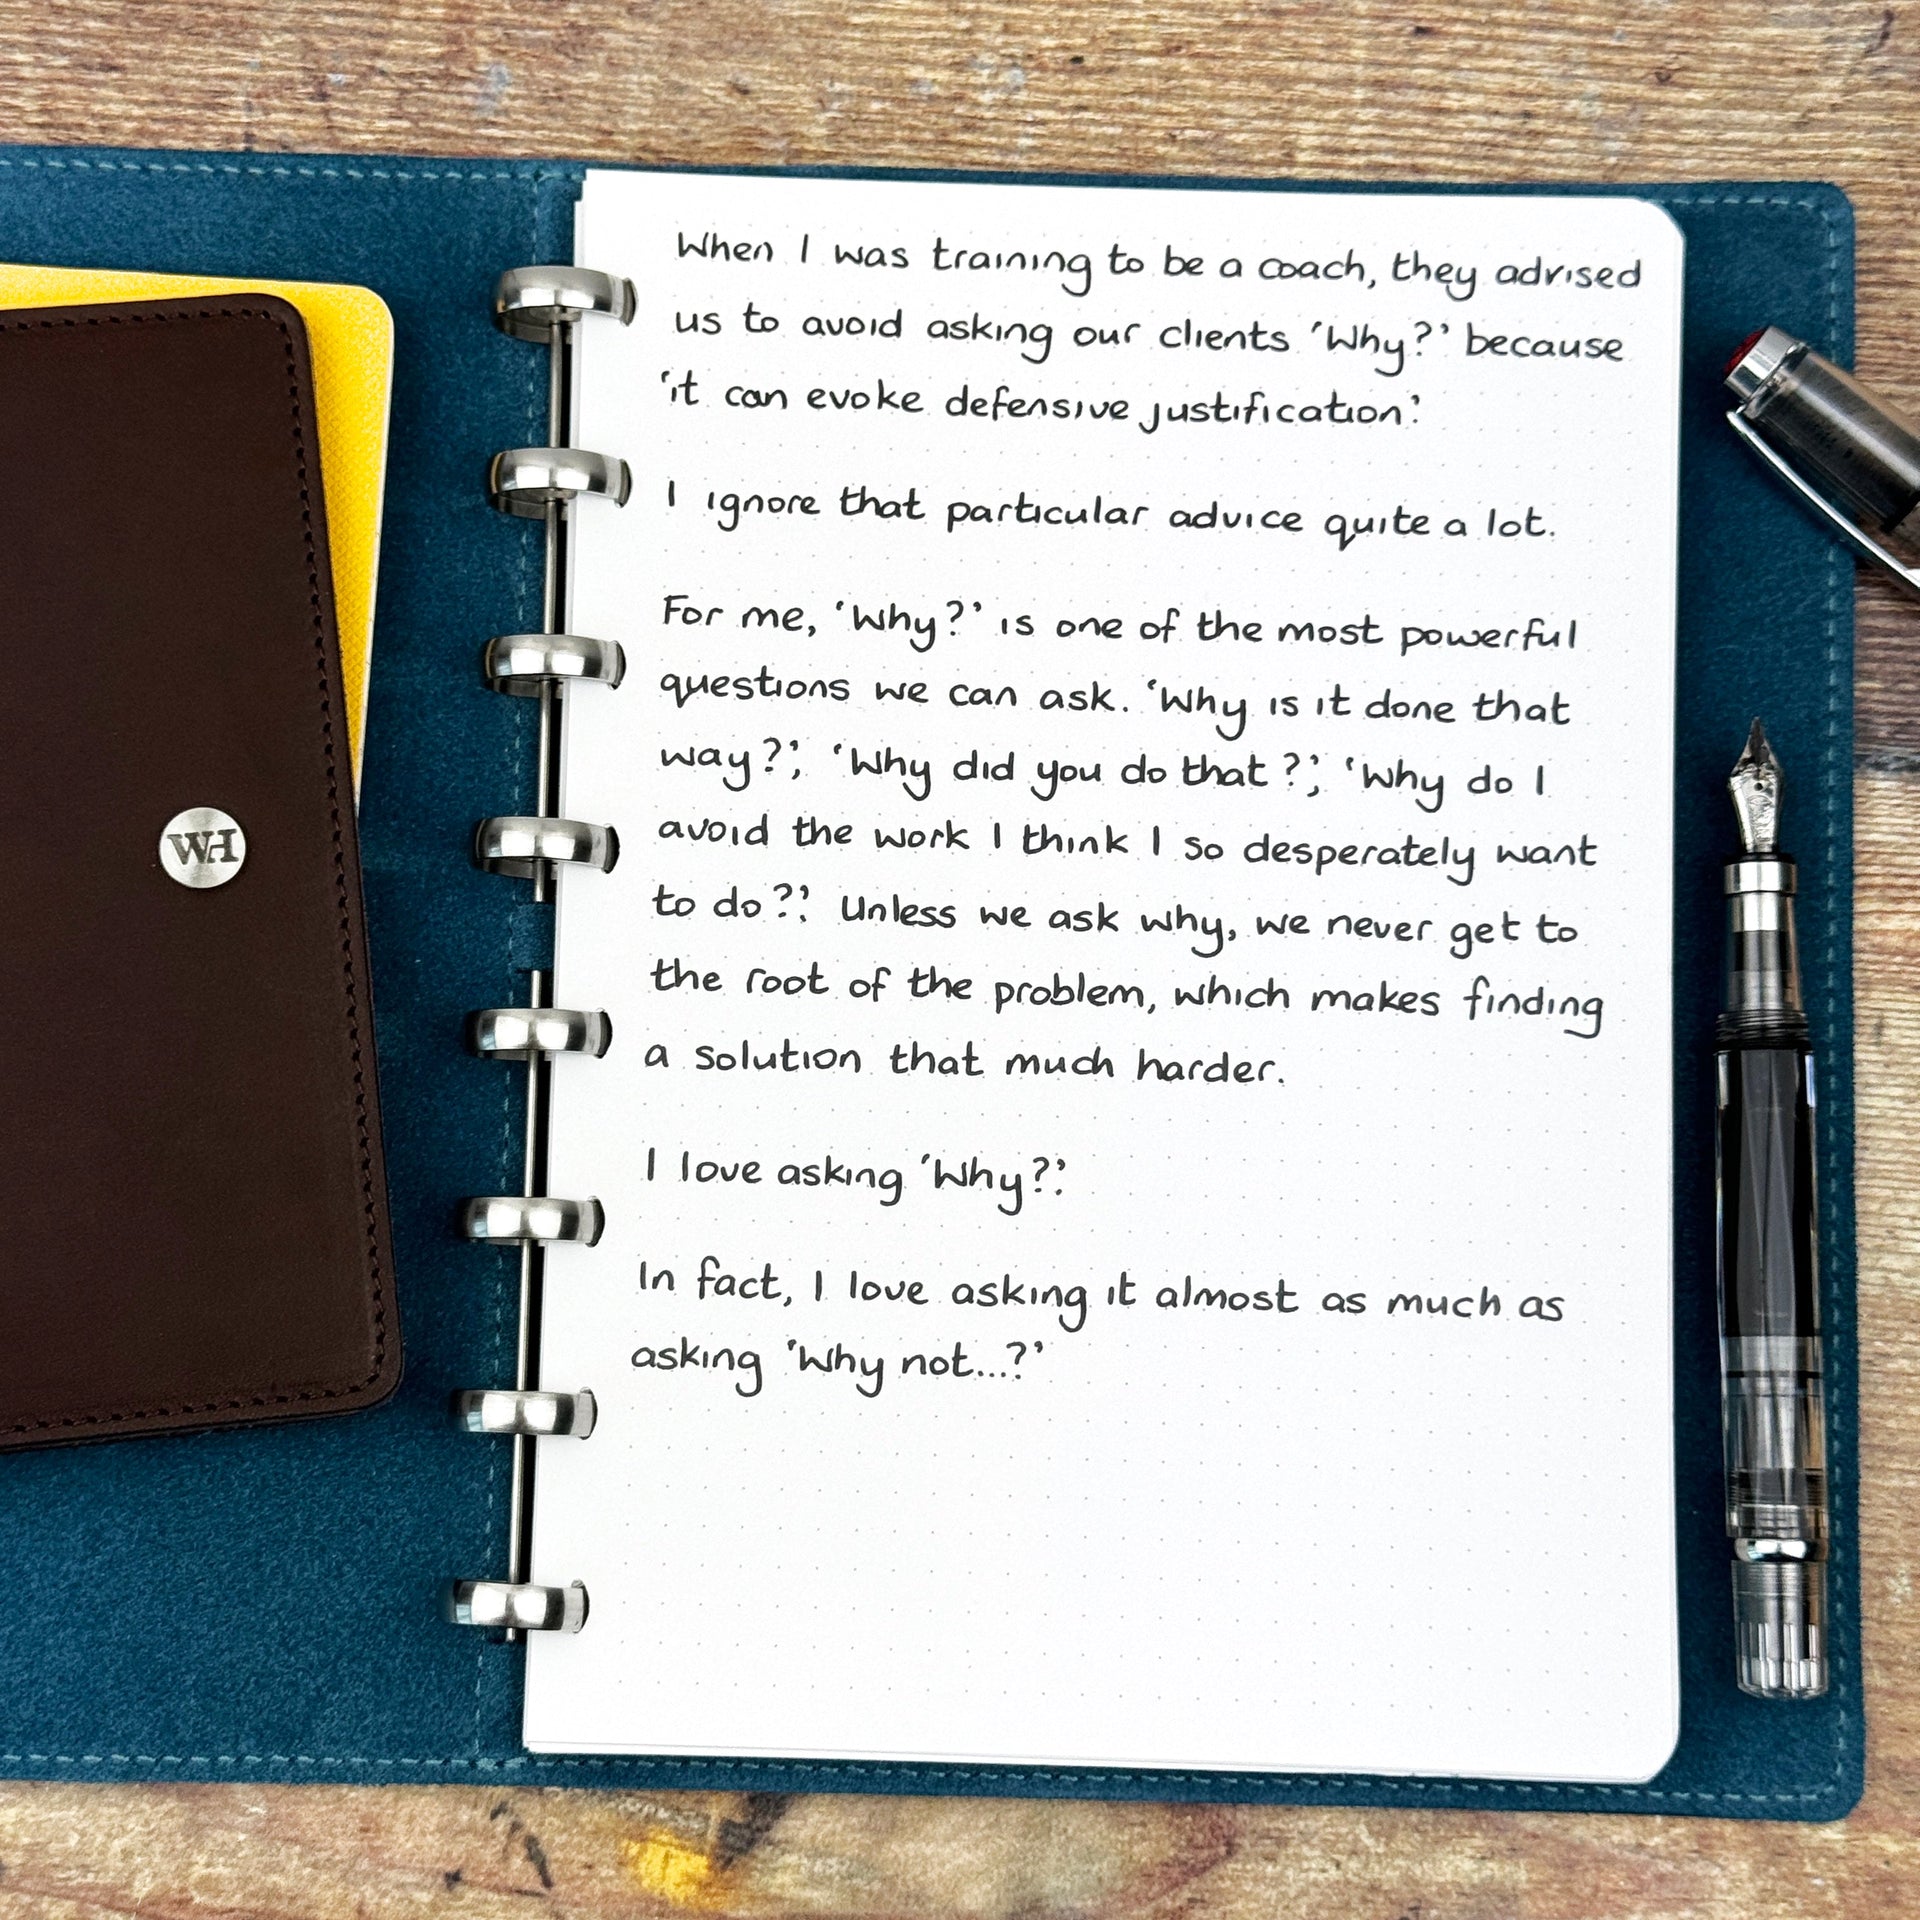 When I was training to be a coach, they advised
us to avoid asking our clients 'Why?' because
'it can evoke defensive justification'.
I ignore that particular advice quite a lot.
For me, 'Why?' is one of the most powerful
questions we can ask. 'Why is it done that
way?', 'Why did you do that?', 'Why do I
avoid the work I think I so desperately want
to do?'. Unless we ask why, we never get to
the root of the problem, which makes finding
a solution that much harder.
I love asking 'Why?'.
In fact, I love asking it almost as much as
asking 'Why not...?'
WH